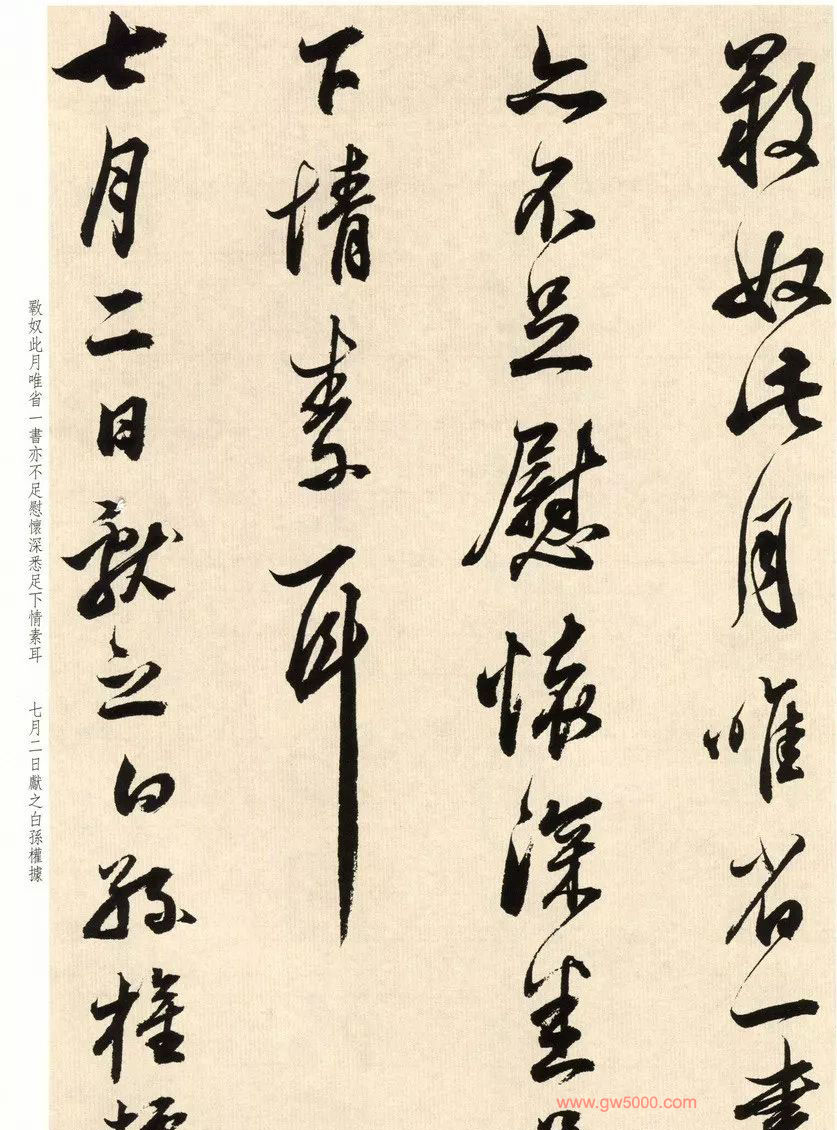 奴此月唯省一書
亦不足慰懷深悉足
下情素耳
七月二日獻之白孫權據
奴此月唯省一書亦不足慰懷深悉足下情素耳 七月二日獻之白孫權據
www.gw5000.com